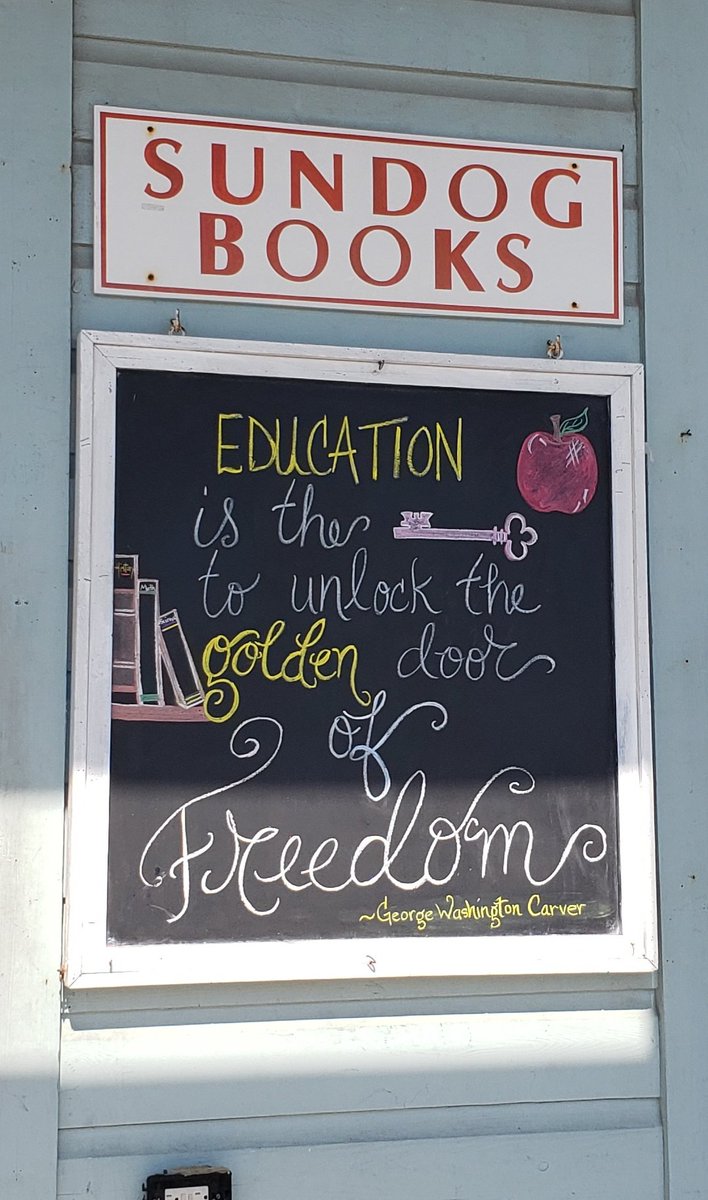 SUNDOG
BOOKS
EDUCATION
is the
to unlock the
golden door
of
Freedom
~George Washington Carver